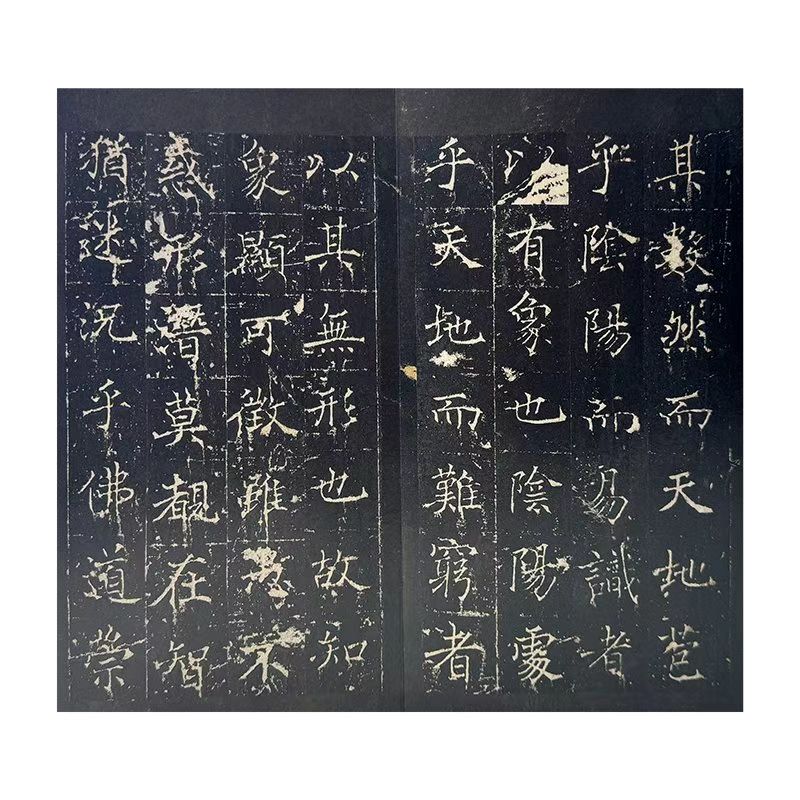 其數然而天地苞
乎陰陽而易識者
以有象也陰陽處
乎天地而難窮者
以其無形也故知
象顯可徵雖愚不
惑形潛莫覩在智
猶迷況乎佛道崇